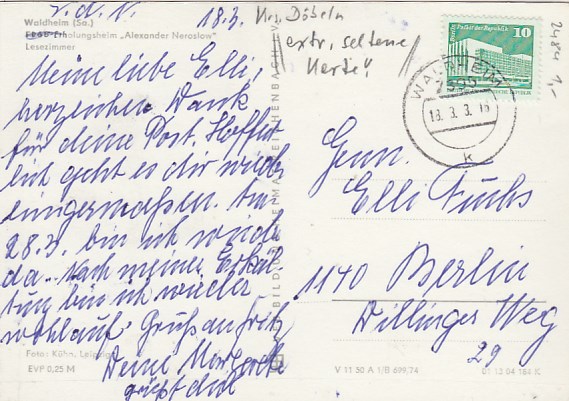 V.d.N.
18.3.
Krs. Döbeln
extr. seltene
Karte!
2484 1,-
Waldheim (Sa.)
FDGB-Erholungsheim „Alexander Neroslow"
Lesezimmer
Meine liebe Elli,
herzlichen Dank
für deine Post. Hoffent
lich geht es dir wieder
einigermaßen. Am
28.3. bin ich wieder
da. Nach meiner Erkäl-
tung bin ich wieder
wohlauf. Gruß an
Deine Margarete
grüßt dich
Foto: Kühn, Leipzig
EVP 0,25 M
BILD UND HEIMAT REICHENBACH
Palast der Republik
10
WALDHEIM
18.3.
k
Genn.
Elli Fuchs
1140 Berlin
Dillinger Weg
29
V 11 50 A 1/B 699/74
01 13 04 184 K